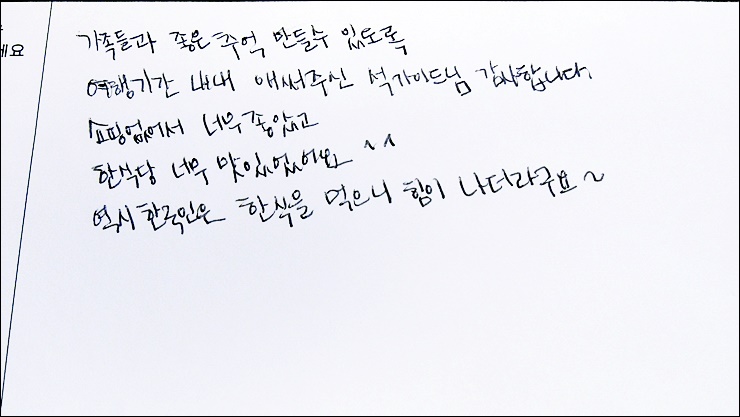 세요
가족들과 좋은 추억 만들수 있도록
여행기간 내내 애써주신 석가이드님 감사합니다.
쇼핑없어서 너무 좋았고
한식당 너무 맛있었어요 ^^
역시 한국인은 한식을 먹으니 힘이 나더라구요~